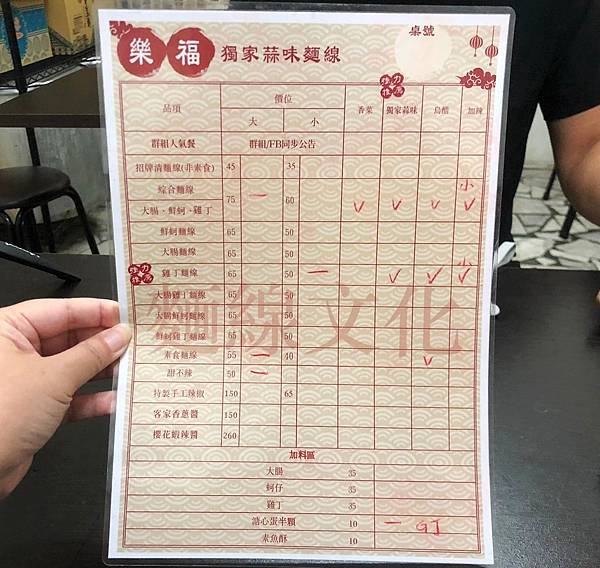 樂福 獨家蒜味麵線 桌號
品項 價位 大 小 香菜 強力推薦 獨家蒜味 烏醋 加辣
群組人氣餐 群組/FB同步公告
招牌清麵線(非素食) 45 35
綜合麵線 小
大腸、鮮蚵、雞丁 75 一 60 ✓ ✓ ✓ ✓
鮮蚵麵線 65 50
大腸麵線 65 50 小
強力推薦 雞丁麵線 65 50 一 ✓ ✓ ✓
大腸雞丁麵線 65 50
大腸鮮蚵麵線 65 50
鮮蚵雞丁麵線 65 50
麵線文化
素食麵線 55 一 40 ✓
甜不辣 50 一
特製手工辣椒 150 65
客家香蔥醬 150
櫻花蝦辣醬 260
加料區
大腸 35
蚵仔 35
雞丁 35
溏心蛋半顆 10 一
素魚酥 10